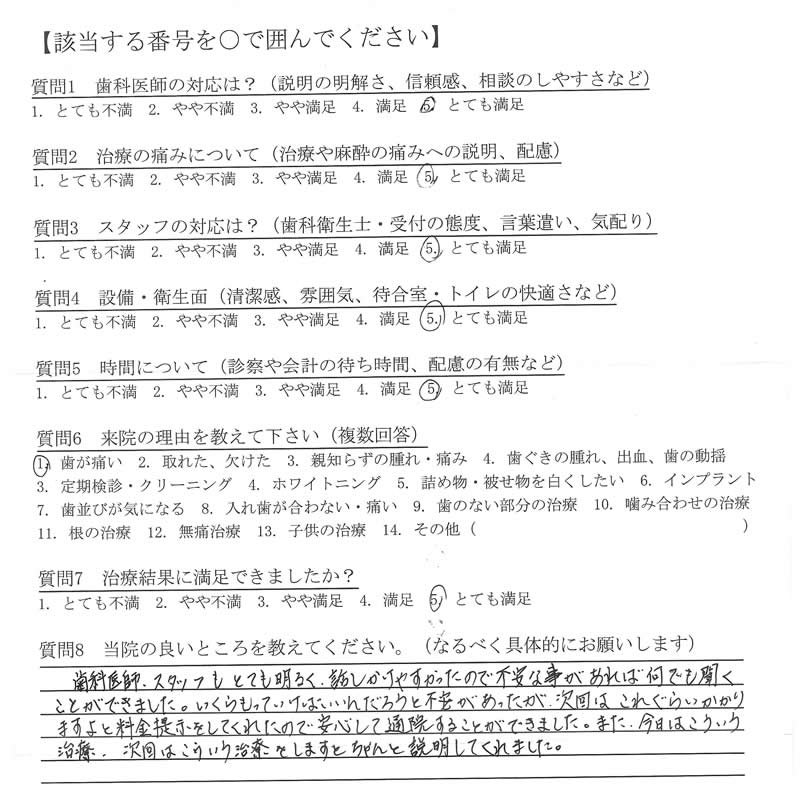 【該当する番号を○で囲んでください】
質問1 歯科医師の対応は？（説明の明解さ、信頼感、相談のしやすさなど）
1. とても不満 2. やや不満 3. やや満足 4. 満足 5. とても満足
質問2 治療の痛みについて（治療や麻酔の痛みへの説明、配慮）
1. とても不満 2. やや不満 3. やや満足 4. 満足 5. とても満足
質問3 スタッフの対応は？（歯科衛生士・受付の態度、言葉遣い、気配り）
1. とても不満 2. やや不満 3. やや満足 4. 満足 5. とても満足
質問4 設備・衛生面（清潔感、雰囲気、待合室・トイレの快適さなど）
1. とても不満 2. やや不満 3. やや満足 4. 満足 5. とても満足
質問5 時間について（診察や会計の待ち時間、配慮の有無など）
1. とても不満 2. やや不満 3. やや満足 4. 満足 5. とても満足
質問6 来院の理由を教えて下さい（複数回答）
1. 歯が痛い 2. 取れた、欠けた 3. 親知らずの腫れ・痛み 4. 歯ぐきの腫れ、出血、歯の動揺
3. 定期検診・クリーニング 4. ホワイトニング 5. 詰め物・被せ物を白くしたい 6. インプラント
7. 歯並びが気になる 8. 入れ歯が合わない・痛い 9. 歯のない部分の治療 10. 噛み合わせの治療
11. 根の治療 12. 無痛治療 13. 子供の治療 14. その他（ ）
質問7 治療結果に満足できましたか？
1. とても不満 2. やや不満 3. やや満足 4. 満足 5. とても満足
質問8 当院の良いところを教えてください。（なるべく具体的にお願いします）
歯科医師、スタッフもとても明るく、話しかけやすかったので不安な事があれば何でも聞く
ことができました。いくらもっていけばいいんだろうと不安があったが、次回はこれぐらいかかり
ますよと料金提示をしてくれたので安心して通院することができました。また、今日はこういう
治療、次回はこういう治療をしますとちゃんと説明してくれました。